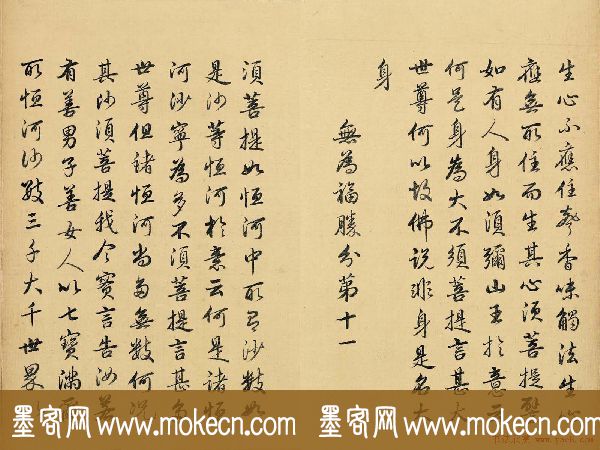 生心不應住聲香味觸法生心
應無所住而生其心須菩提譬
如有人身如須彌山王於意云
何是身為大不須菩提言甚大
世尊何以故佛說非身是名大
身
無為福勝分第十一
須菩提如恒河中所有沙數如
是沙等恒河於意云何是諸恒
河沙寧為多不須菩提言甚多
世尊但諸恒河尚多無數何況
其沙須菩提我今實言告汝若
有善男子善女人以七寶滿爾
所恒河沙數三千大千世界
墨客网 www.mokecn.com 墨客网 www.mokecn.com